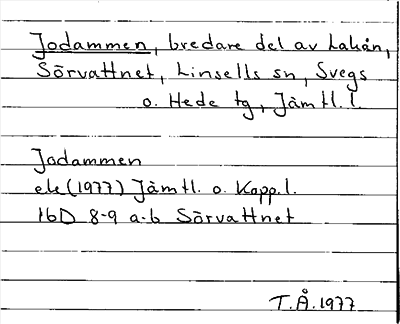 Jodammen, bredare del av Lakån,
Sörvattnet, Linsells sn, Svegs
o. Hede tg, Jämtl. l.
Jodammen
ek (1977) Jämtl. o. Kopp. l.
16D 8-9 a-b Sörvattnet
T.Å. 1977